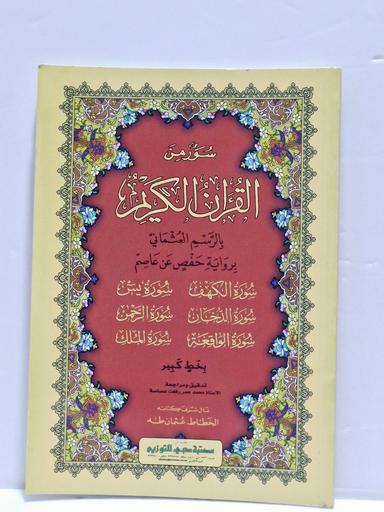 سُوَرٌ مِنَ
القُرْآنُ الكَرِيمُ
بِالرَّسْمِ العُثْمَانِيّ
بِرِوَايَةِ حَفْصٍ عَنْ عَاصِم
سُورَةُ الكَهْفِ سُورَةُ يسَ
سُورَةُ الدُّخَانِ سُورَةُ الرَّحْمٰن
سُورَةُ الوَاقِعَةِ سُورَةُ المُلْك
بِخَطٍّ كَبِير
تدقيق ومراجعة
الاستاذ محمد عمر رفعت
نال شرف كتابته
الخطاط: عثمان طه